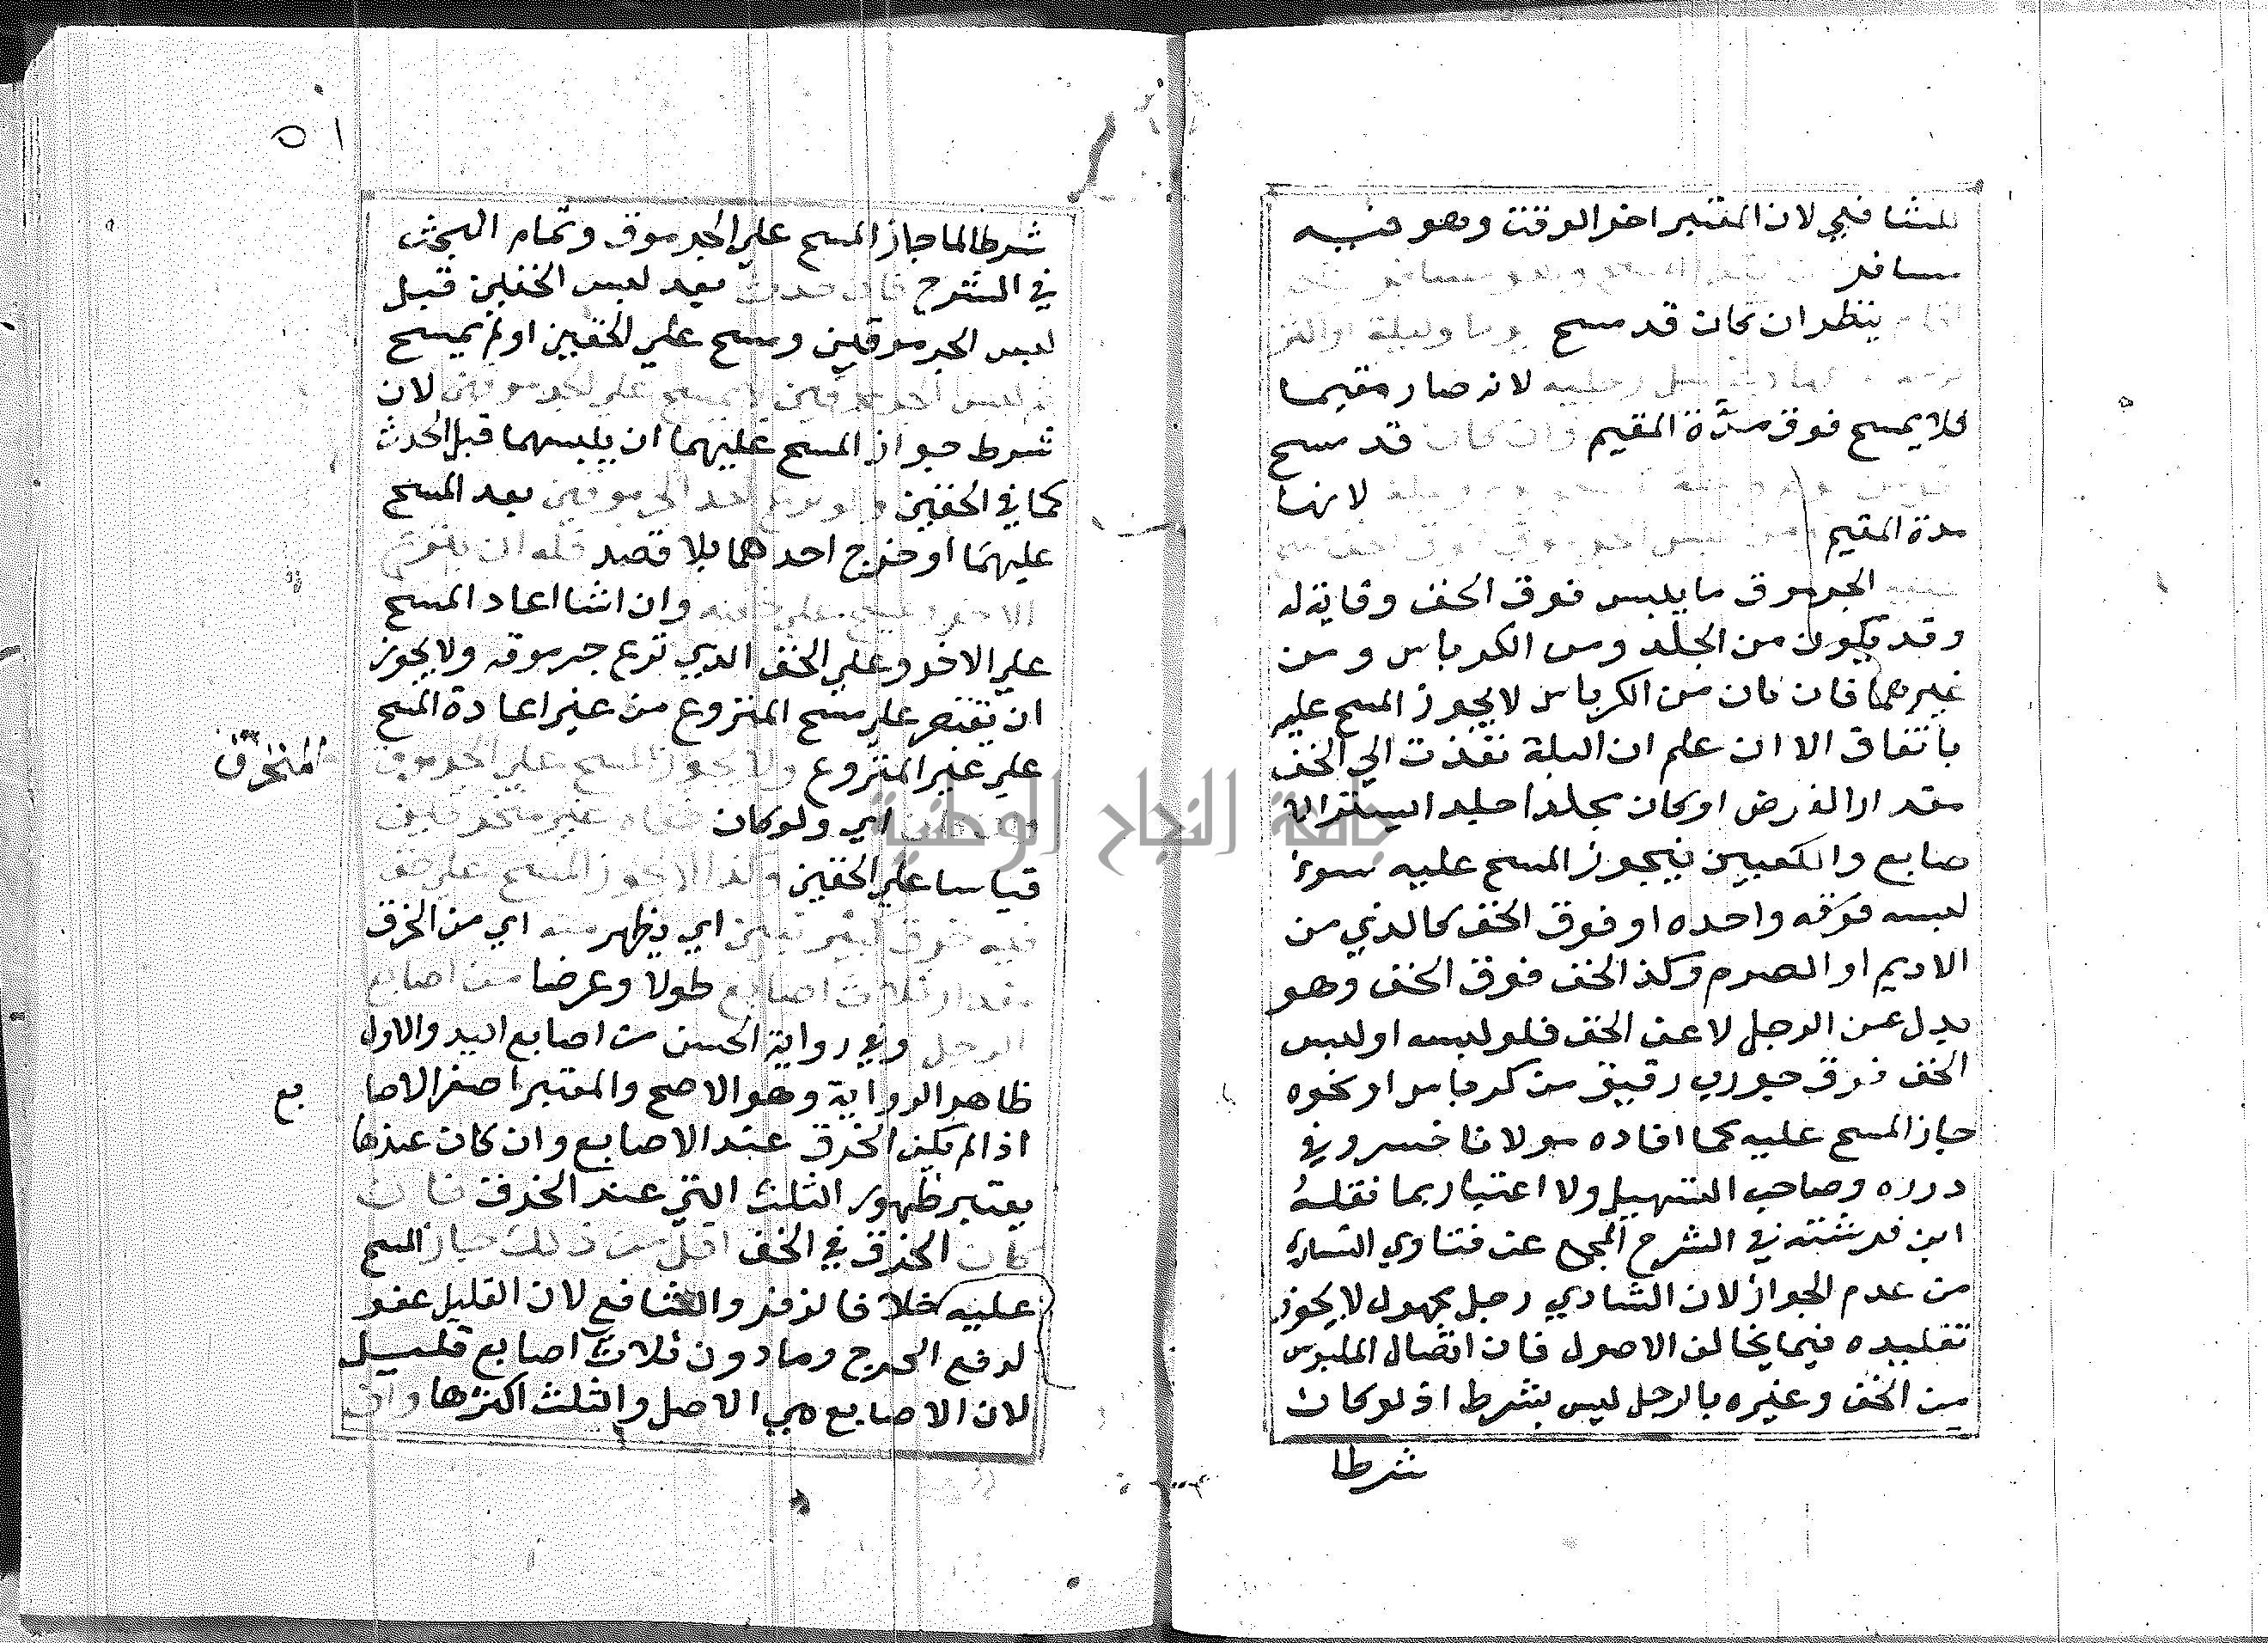 للشافعي لان المعتبر اخر الوقت وهو فيه
مسافر
ينظر ان كان قد مسح يوما وليلة او اكثر
لانه صار مقيما
فلا يمسح فوق مدة المقيم وان كان قد مسح
لانها
مدة المقيم
الجرموق ما يلبس فوق الخف وقاية له
وقد يكون من الجلد ومن الكرباس ومن
غيرهما فان كان من الكرباس لا يجوز المسح عليه
باتفاق الا ان علم ان البلة نفذت الي الخف
مقدار الفرض او كان بجلد
صابع والكعبين فيجوز المسح عليه سوء
لبسه فوقه واحده او فوق الخف كالذي من
الاديم او الصرم وكذ الخف فوق الخف وهو
بدل عن الرجل لا عن الخف فلو لبسه او لبس
الخف فوق جورب رقيق من كرباس او نحوه
جاز المسح عليه كما افاده مولانا خسرو في
درره وصاحب التسهيل ولا اعتبار بما نقله
ابن فرشته في الشرح المجمع عن فتاوي الشاذي
من عدم الجواز لان الشاذي رجل مجهول لا يجوز
تقليده فيما يخالف الاصول فان اتصال الملبوس
من الخف وغيره بالرجل ليس بشرط اذ لو كان
شرطا
٥١
شرطا لما جاز المسح علي الجرموق وتمام البحث
في الشرح فان حدث بعد لبس الخفين قبل
لبس الجرموقين ومسح علي الخفين او لم يمسح
ثم لبس الجرموقين لا يمسح علي الجرموقين لان
شرط جواز المسح عليهما ان يلبسهما قبل الحدث
كما في الخفين ولو نزع احد الجرموقين بعد المسح
عليهما او خرج احدهما بلا قصد فله ان
الاخر وان شا اعاد المسح
علي الاخر وعلي الخف الذي نزع جرموقه ولا يجوز
ان يقتصر علي مسح المنزوع من غير اعادة المسح
علي غير المنزوع ولا يجوز المسح علي الجرموق
المنخرق
اي ولو كان خفاه غير منخرقين
قياسا علي الخفين وكذا لا يجوز المسح علي خف
فيه خرق كبير تعين اي يظهر منه اي من الخرق
مقدار ثلاث اصابع طولا وعرضا من اصابع
الرجل وفي رواية الحسن من اصابع اليد والاول
ظاهر الرواية وهو الاصح والمعتبر اصغر الاصا
بع
اذا لم يكن الخرق عند الاصابع وان كان عندها
يعتبر ظهور الثلث التي عند الخرق فان
كان الخرق في الخف اقل من ذلك جاز المسح
عليه خلافا لزفر والشافعي لان القليل عفو
لدفع الحرج وما دون ثلاث اصابع قليل
لان الاصابع هي الاصل والثلث اكثرها وان